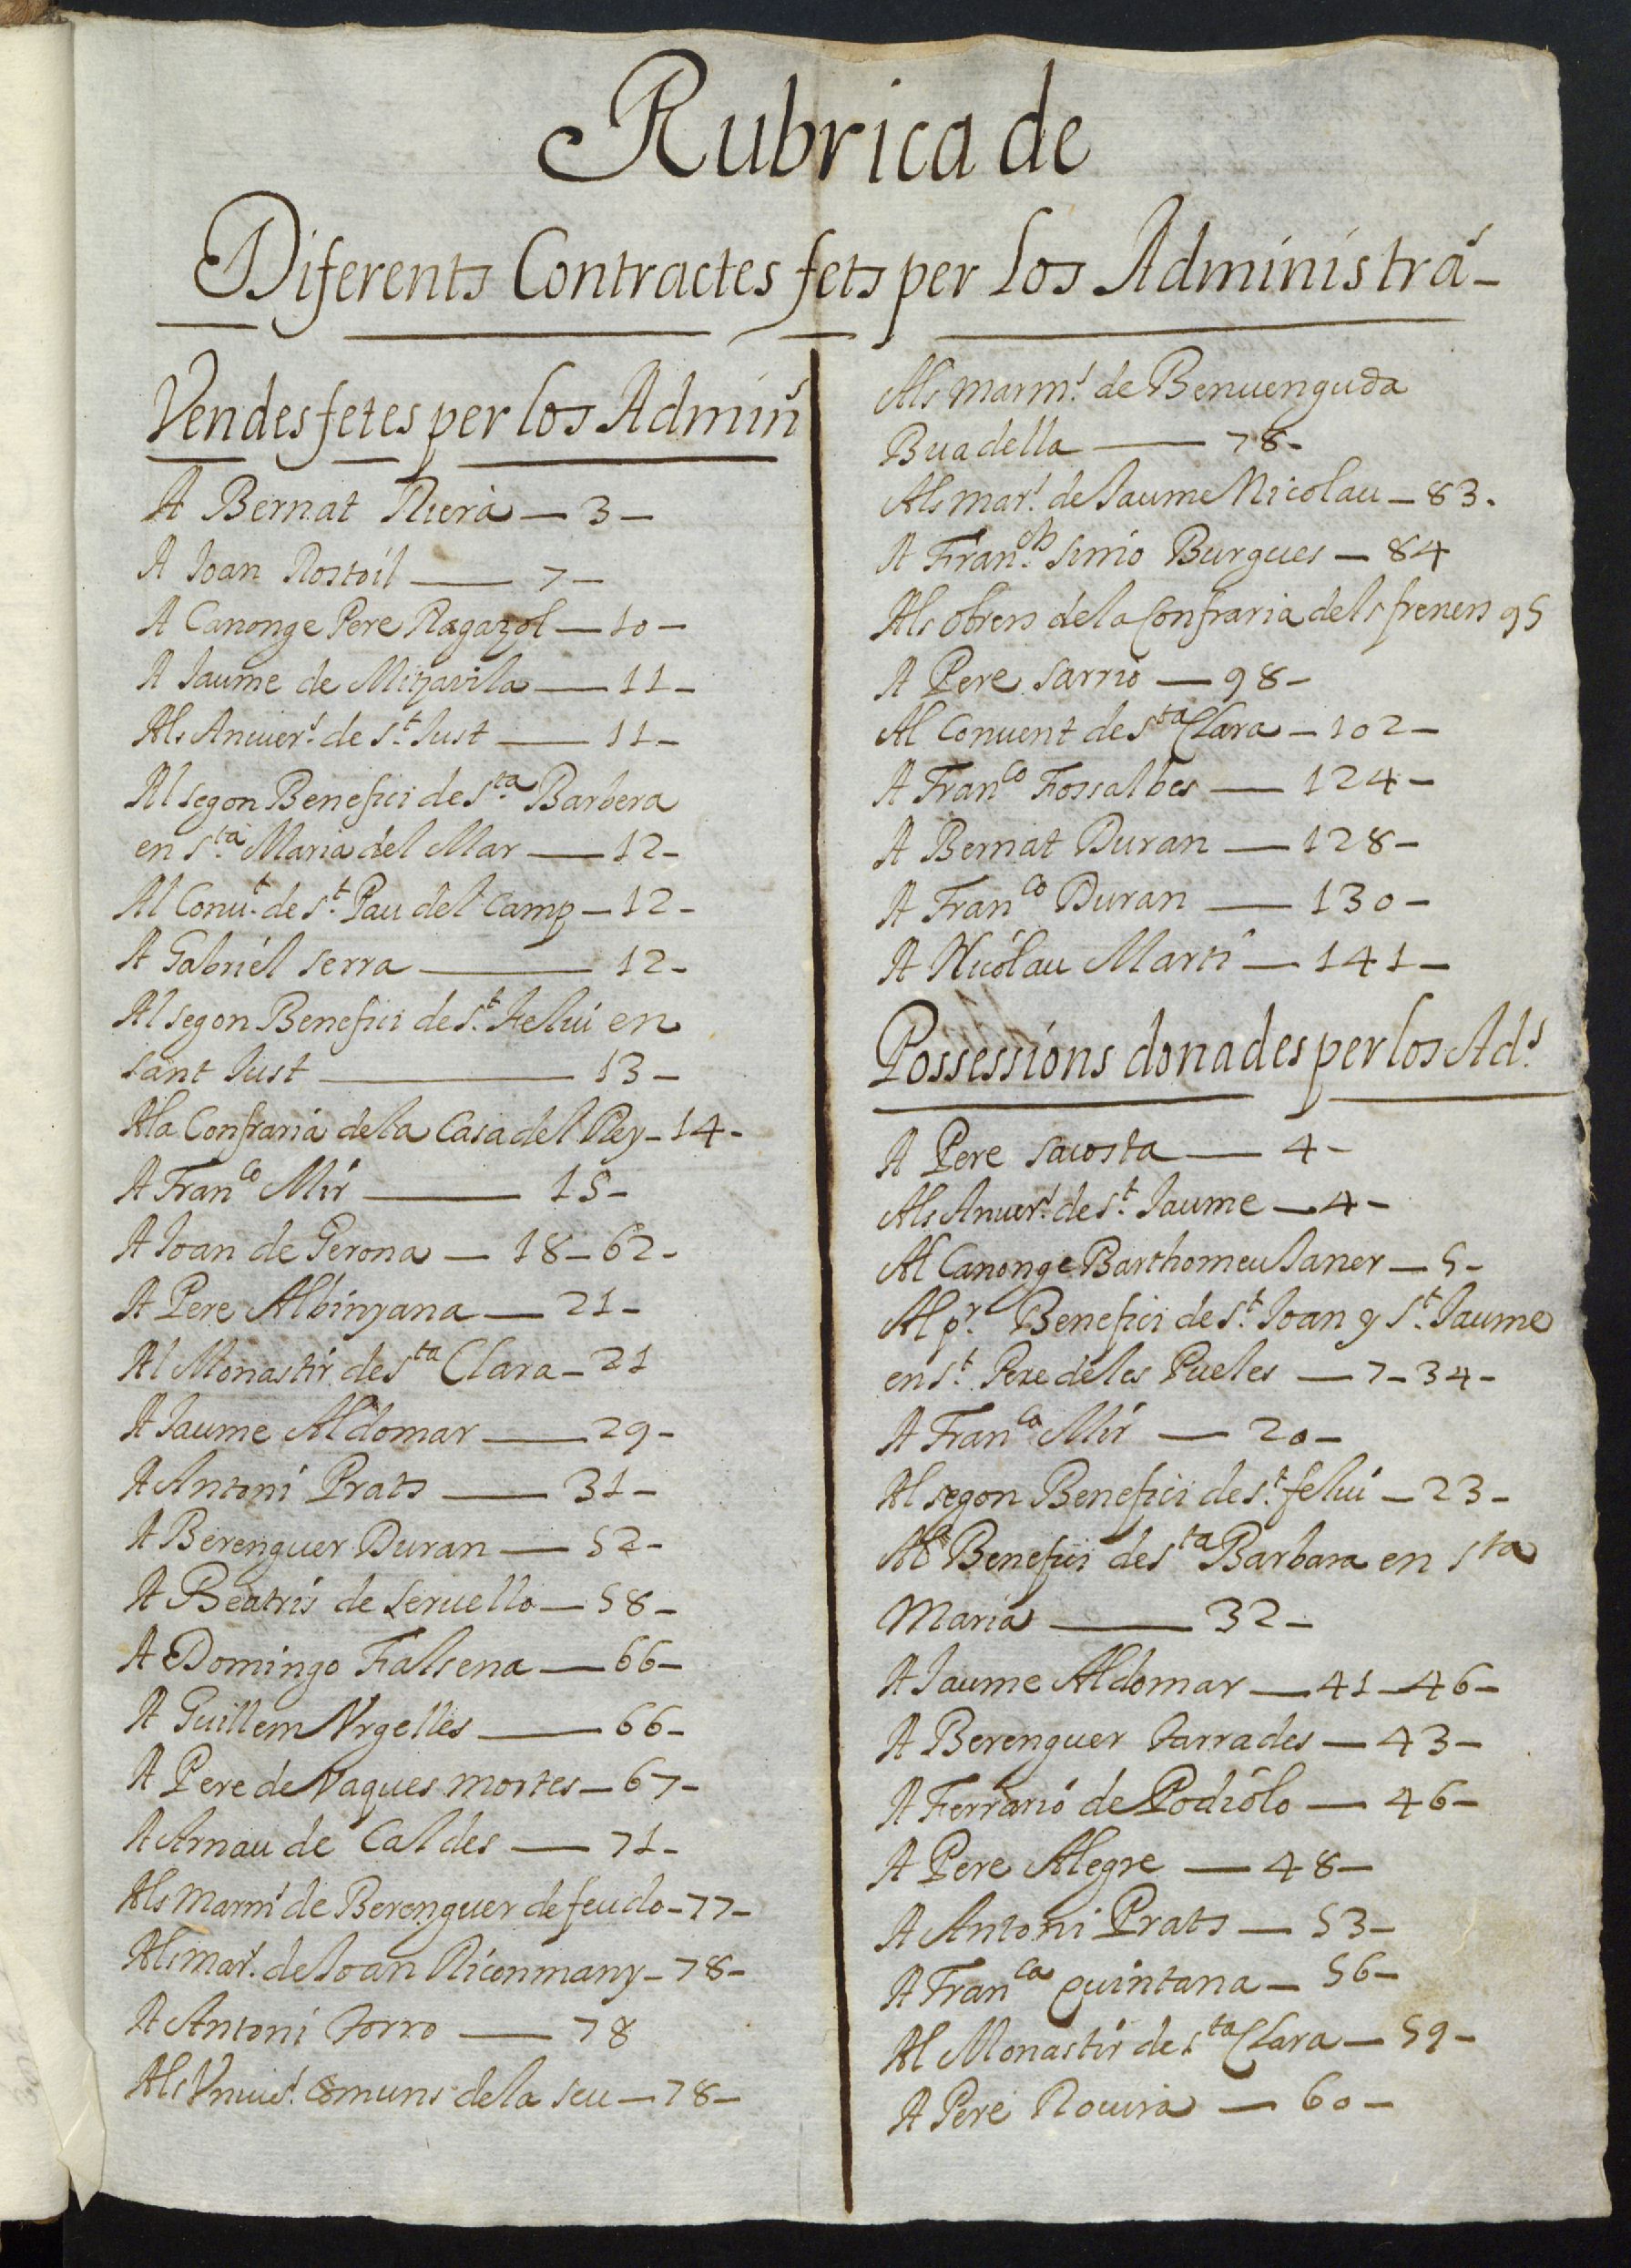 Rubrica de
Diferents Contractes fets per los Administra.s
Vendes fetes per los Admin.s
A Bernat Riera — 3 —
A Joan Rostoil — 7 —
A Canonge Pere Ragazol — 10 —
A Jaume de Mitjavila — 11 —
Als Aniuer.s de S.t Just — 11 —
Al segon Benefici de S.ta Barbera
en S.ta Maria del Mar — 12 —
Al Conu.t de S.t Pau del Camp — 12 —
A Gabriel Serra — 12 —
Al segon Benefici de S.t Feliu en
sant Just — 13 —
A la Confraria de la Casa del Rey — 14 —
A Fran.co Mir — 15 —
A Joan de Gerona — 18 — 62 —
A Pere Albinyana — 21 —
Al Monastir de S.ta Clara — 21
A Jaume Aldomar — 29 —
A Antoni Prats — 31 —
A Berenguer Duran — 52 —
A Beatris de Seruello — 58 —
A Domingo Falsena — 66 —
A Guillem Vrgelles — 66 —
A Pere de Vaques mortes — 67 —
A Arnau de Caldes — 71 —
Als Marm.s de Berenguer de feudo — 77 —
Als mar.s de Joan Riconmany — 78 —
A Antoni Torro — 78
Als comuns de la seu — 78 —
Als marm.s de Benuenguda
Buadella — 78 —
Als mar.s de Jaume Nicolau — 83 .
A Fran.ch Burgues — 84
Als obrers de la Confraria dels freners 95
A Pere Sarrio — 98 —
Al Conuent de S.ta Clara — 102 —
A Fran.co Fossalbes — 124 —
A Bernat Duran — 128 —
A Fran.co Duran — 130 —
A Nicolau Marti — 141 —
Possessions donades per los Ad.s
A Pere Sacosta — 4 —
Als Aniuer.s de S.t Jaume — 4 —
Al Canonge Barthomeu Janer — 5 —
Al p.r Benefici de S.t Joan y S.t Jaume
en S.t Pere de les Pueles — 7 — 34 —
A Fran.co Mir — 20 —
Al segon Benefici de S.t feliu — 23 —
Benefici de S.ta Barbara en S.ta
Maria — 32 —
A Jaume Aldomar — 41 — 46 —
A Berenguer Tarrades — 43 —
A Ferrario de Podiolo — 46 —
A Pere Alegre — 48 —
A Antoni Prats — 53 —
A Fran.ca Quintana — 56 —
Al Monastir de S.ta Clara — 59 —
A Pere Rouira — 60 —